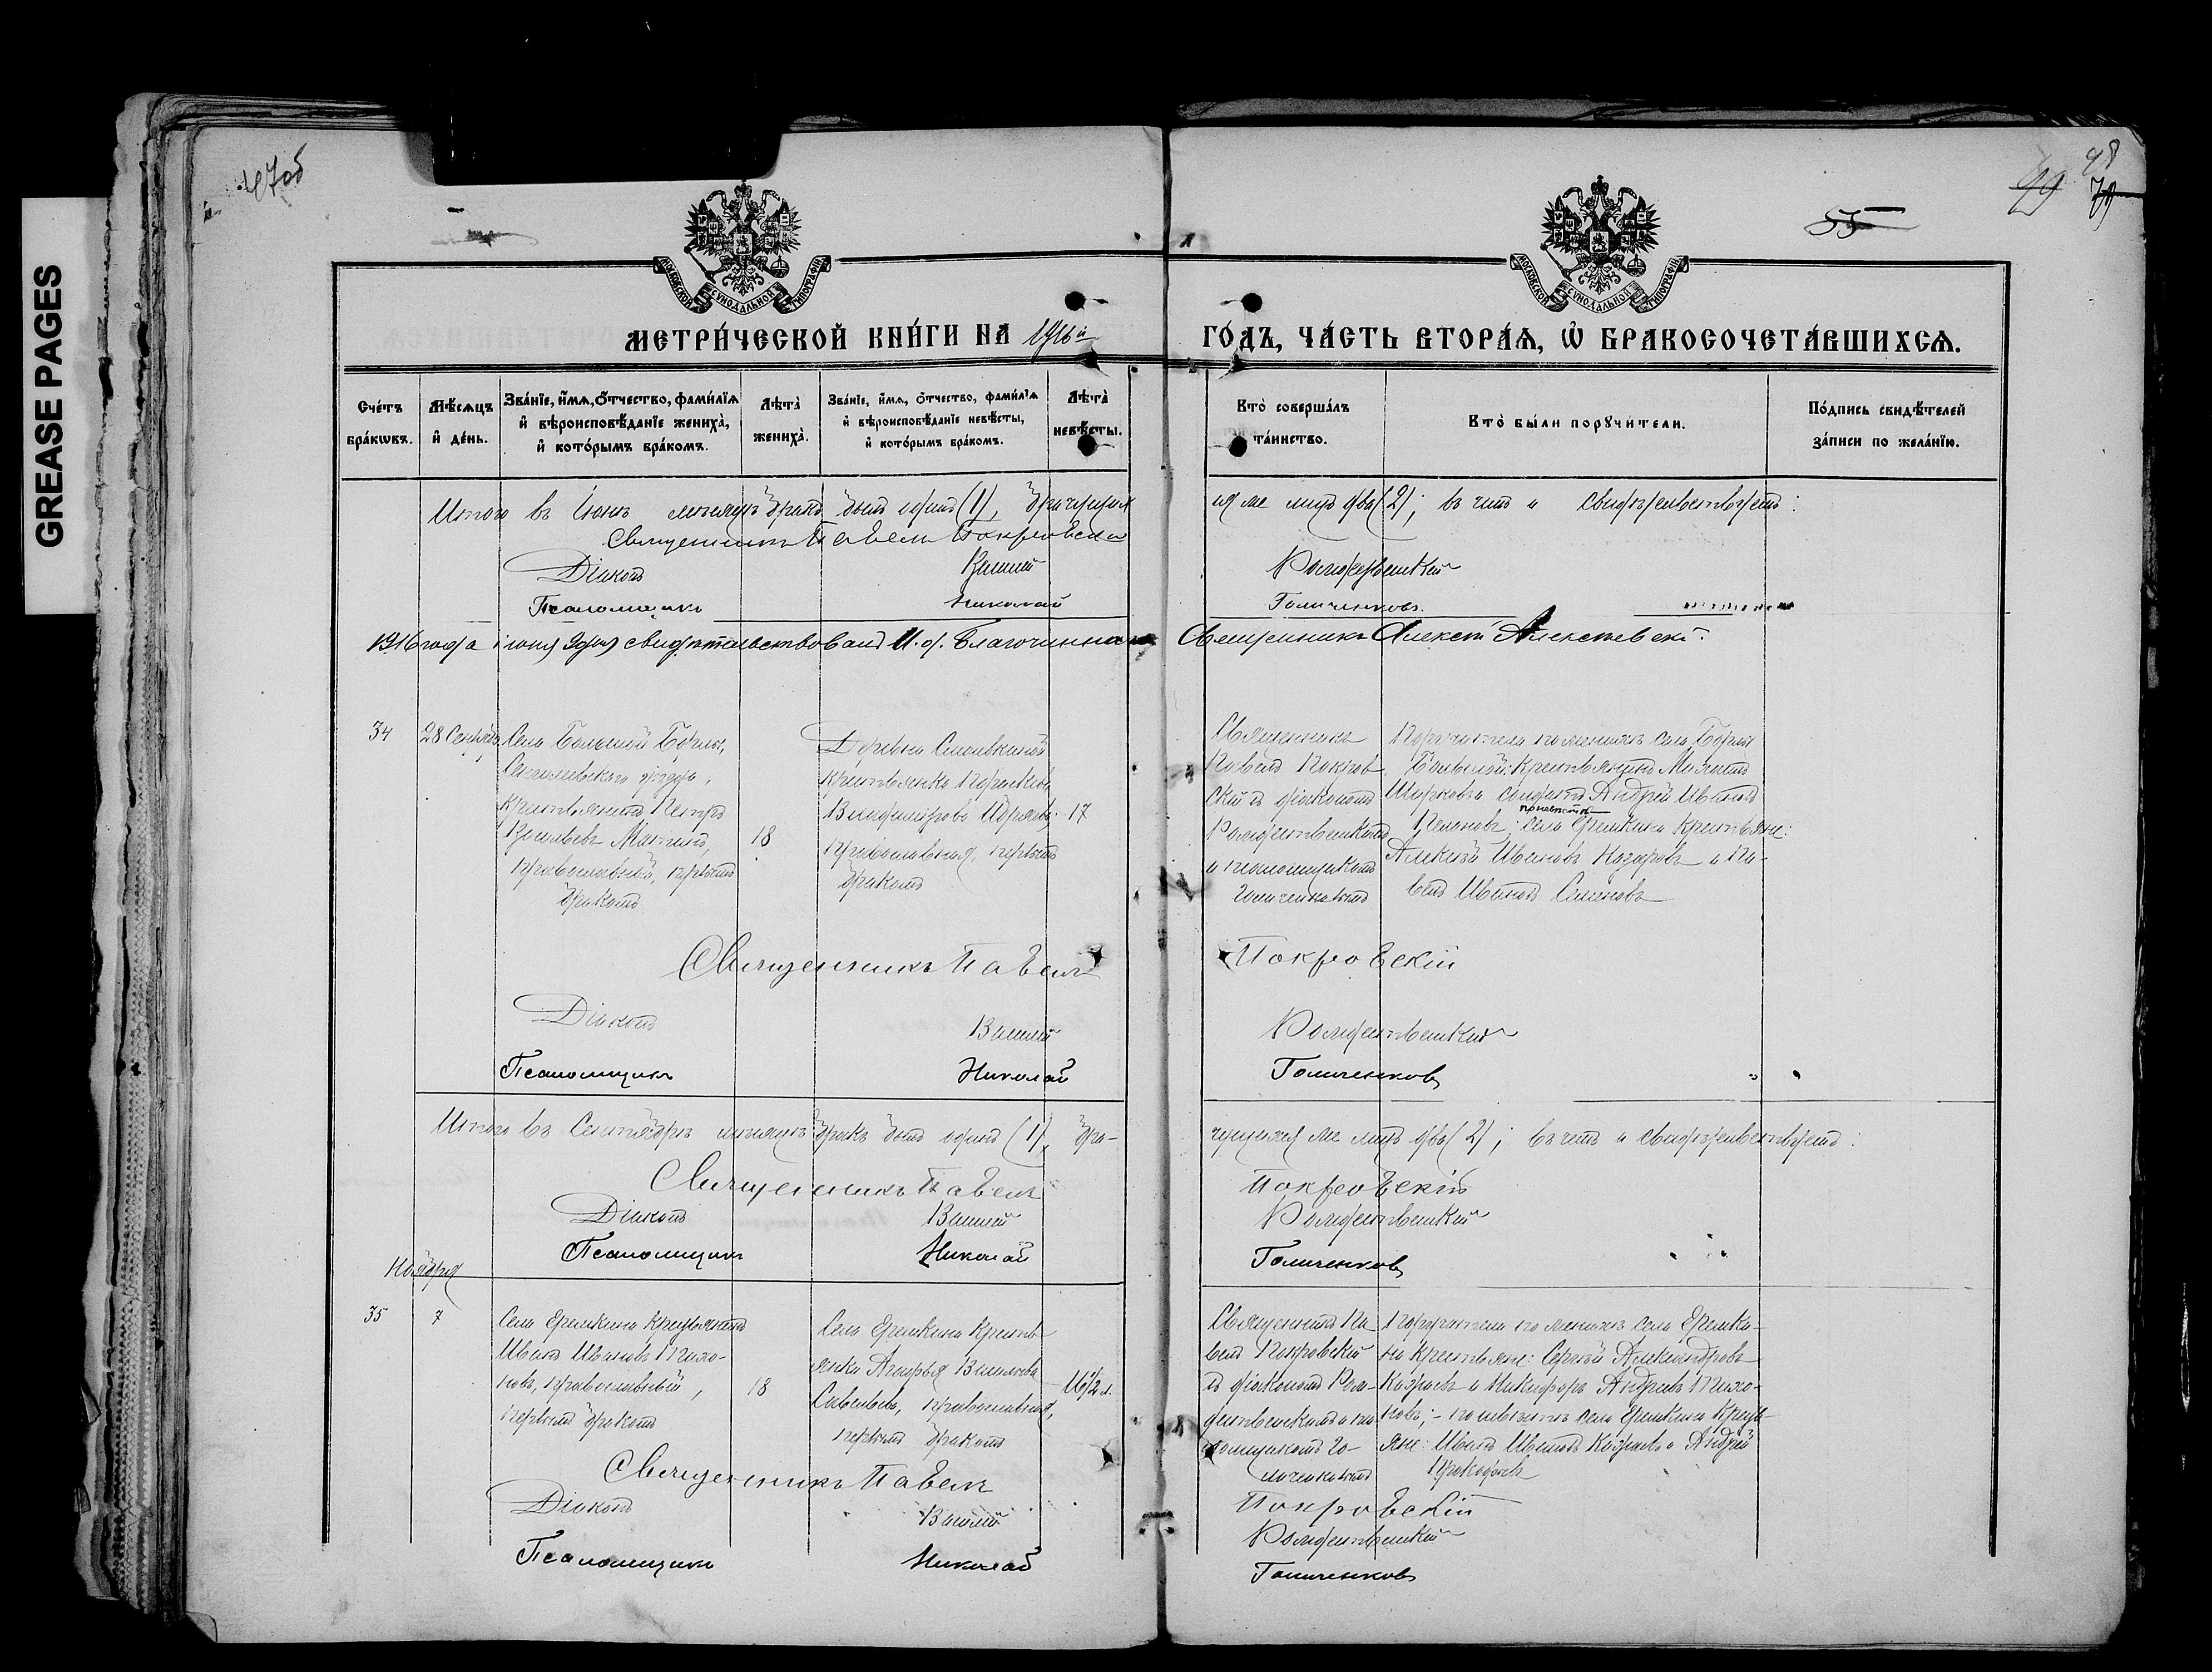 GREASE PAGES
47об
98
49 79
55
МОСКОВСКОЙ СѴНОДАЛЬНОЙ ТИПОГРАФІИ
МОСКОВСКОЙ СѴНОДАЛЬНОЙ ТИПОГРАФІИ
МЕТРИ́ЧЕСКОЙ КНИ́ГИ НА 1916й ГО́ДЪ, ЧА́СТЬ ВТОРА́Ѧ, Ѡ҆ БРАКОСОЧЕТА́ВШИХСѦ.
Сче́тъ бра́кѡвъ.
Мѣ́сѧцъ и҆ де́нь.
Зва́нїе, и҆́мѧ, ѻ҆́тчество, фами́лїѧ и҆ вѣроисповѣ́данїе жениха̀, и҆ кото́рымъ бра́комъ.
Лѣта̀ жениха̀.
Зва́нїе, и҆́мѧ, ѻ҆́тчество, фами́лїѧ и҆ вѣроисповѣ́данїе невѣ́сты, и҆ кото́рымъ бра́комъ.
Лѣта̀ невѣ́сты.
Кто̀ соверша́лъ та́инство.
Кто̀ бы́ли порꙋчи́тели.
По́дпись свидѣ́телей за́писи по жела́нїю.
Итого въ Іюнѣ мѣсяцѣ бракъ былъ одинъ (1), брачущих
ся же лицъ два (2); въ чемъ и свидѣтельствуютъ:
Священникъ Павелъ Покровскій
Діаконъ Василій Рождественскій
Псаломщикъ Николай Голиченковъ.
1916 года іюня 3 дня свидѣтельствовалъ И. д. Благочиннаго Священникъ Алексѣй Алексѣевскій.
34
28 Сентября
Села Большой Борлы,
Сенгилеевскаго уѣзда,
крестьянинъ Петръ
Васильевъ Матинъ,
православный, первымъ
бракомъ
18
Деревни Смолькиной
крестьянка Параскева
Владимірова
православная, первымъ
бракомъ
17
Священникъ
Павелъ Покров
скій съ діакономъ
Рождественскимъ
и псаломщикомъ
Голиченковымъ
Поручители по женихѣ села Борлы
Большой: крестьянинъ
Андрей Ивановъ
по невѣстѣ
села Еремкина крестьяне:
Алексѣй Ивановъ Назаровъ и Па-
велъ Ивановъ Семеновъ
Священникъ Павелъ Покровскій
Діаконъ Василій Рождественскій
Псаломщикъ Николай Голиченковъ
Итого въ Сентябрѣ мѣсяцѣ бракъ былъ одинъ (1), бра-
чущихся же лицъ два (2); въ чемъ и свидѣтельствуютъ:
Священникъ Павелъ Покровскій
Діаконъ Василій Рождественскій
Псаломщикъ Николай Голиченковъ
Ноября
35
7
Села Еремкина крестьянинъ
Иванъ Ивановъ Тихо-
новъ, православный,
первымъ бракомъ
18
Села Еремкина кресть-
янка Агафья Васильева
Савельева, православная,
первымъ бракомъ
16 1/2 л.
Священникъ Па
велъ Покровскій
съ діакономъ Рож-
дественскимъ и пса
ломщикомъ Го-
личенковымъ
Поручители по женихѣ села Еремки-
на крестьяне: Сергѣй Александровъ
и Никифоръ Андреевъ Тихо-
новъ; - по невѣстѣ села Еремкина кресть-
яне: Иванъ Ивановъ и Андрей
Прокофьевъ
Священникъ Павелъ Покровскій
Діаконъ Василій Рождественскій
Псаломщикъ Николай Голиченковъ